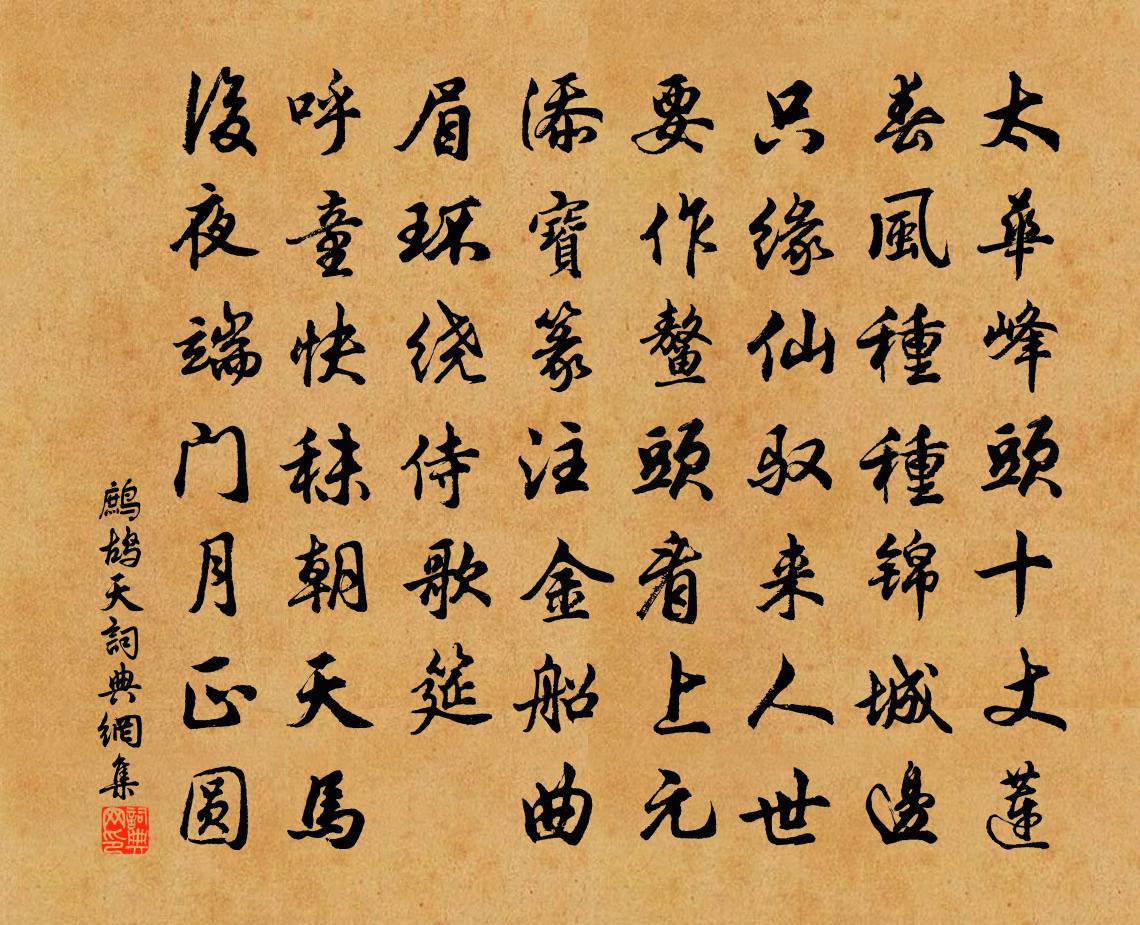 太華峰頭十丈蓮
春風種種锦城邊
只缘仙驭来人世
要作鳌頭看上元
添寶篆注金船曲
眉环绕侍歌筵
呼童快秣朝天馬
後夜端门月正圆
鷓鴣天詞典網集
詞典网印